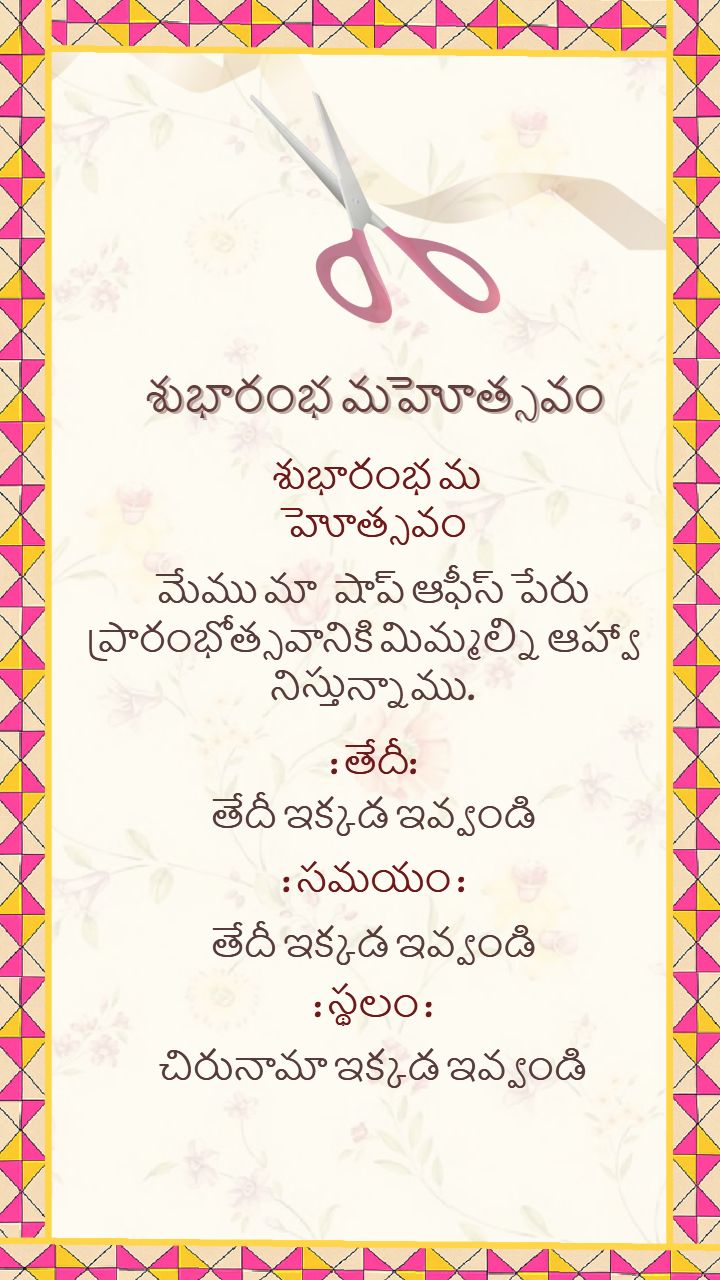 శుభారంభ మహోత్సవం
శుభారంభ మ
హోత్సవం
మేము మా షాప్ ఆఫీస్ పేరు
ప్రారంభోత్సవానికి మిమ్మల్ని ఆహ్వా
నిస్తున్నాము.
:తేదీ:
తేదీ ఇక్కడ ఇవ్వండి
:సమయం:
తేదీ ఇక్కడ ఇవ్వండి
:స్థలం:
చిరునామా ఇక్కడ ఇవ్వండి